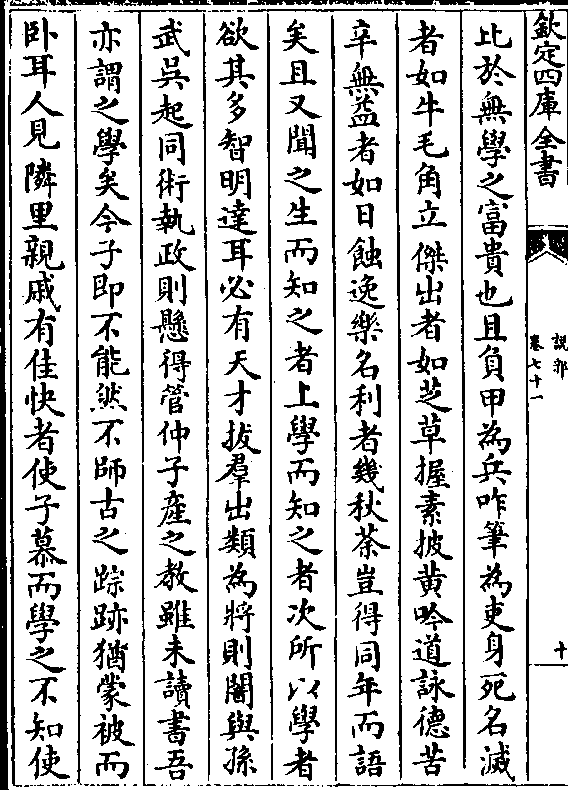 欽定四庫全書
說郛
卷七十一
十
比於無學之富貴也且負甲為兵咋筆為吏身死名滅
者如牛毛角立傑出者如芝草握素披黄吟道詠德苦
辛無益者如日蝕逸樂名利者幾秋荼豈得同年而語
矣且又聞之生而知之者上學而知之者次所以學者
欲其多智明達耳必有天才拔羣出類為將則闇與孫
武吳起同術執政則懸得管仲子產之教雖未讀書吾
亦謂之學矣今子即不能然不師古之踪跡猶蒙被而
卧耳人見隣里親戚有佳快者使子慕而學之不知使